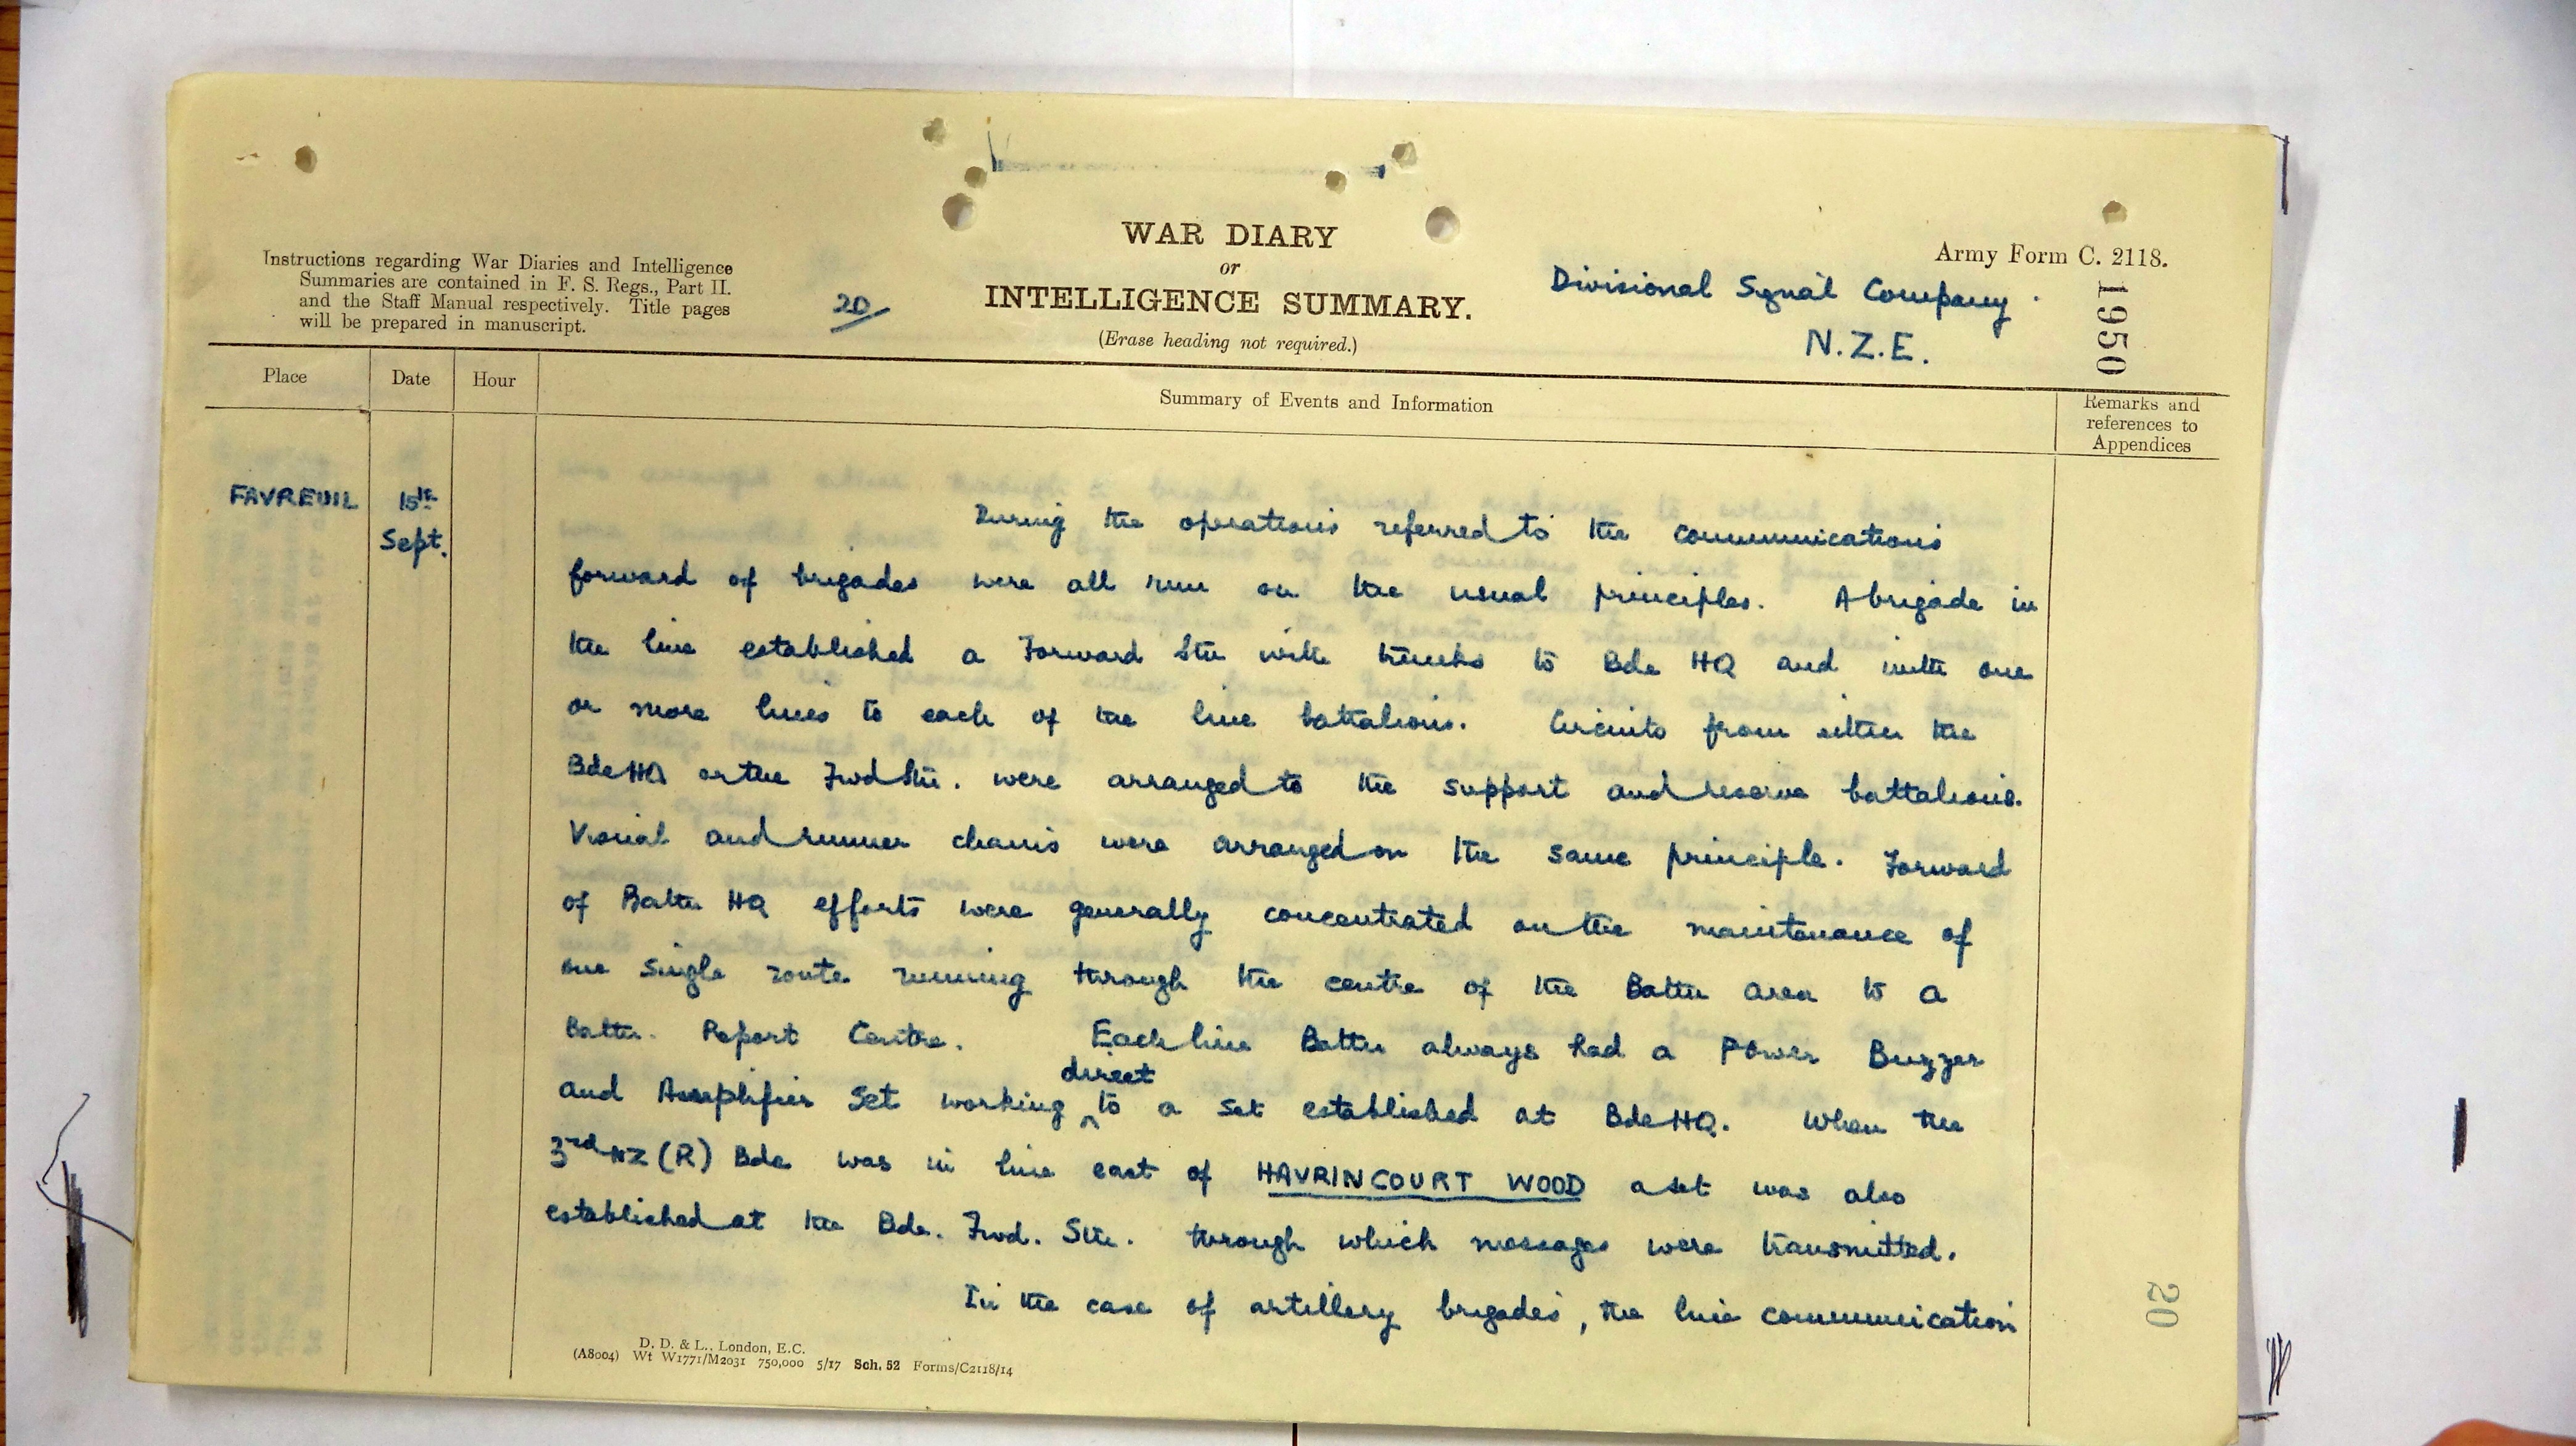 WAR DIARY
or
INTELLIGENCE SUMMARY.
(Erase heading not required.)
Instructions regarding War Diaries and Intelligence
Summaries are contained in F. S. Regs., Part II.
and the Staff Manual respectively. Title pages
will be prepared in manuscript.
20/
Army Form C. 2118.
Divisional Signal Company.
N.Z.E.
1950
Place Date Hour Summary of Events and Information Remarks and
references to
Appendices
FAVREUIL 15th
Sept.
During the operations referred to the communications
forward of brigades were all run on the usual principles. A brigade in
the line established a Forward Stn with trunks to Bde HQ and with one
or more lines to each of the line battalions. Circuits from either the
Bde HQ or the Fwd Stn. were arranged to the support and reserve battalions.
Visual and runner chains were arranged on the same principle. Forward
of Battn HQ efforts were generally concentrated on the maintenance of
one single route running through the centre of the Battn area to a
Battn. Report Centre. Each line Battn always had a Power Buzzer
and Amplifier Set working direct to a set established at Bde HQ. When the
3rd NZ (R) Bde was in line east of HAVRINCOURT WOOD a set was also
established at the Bde. Fwd. Stn. through which messages were transmitted.
In the case of artillery brigades, the line communication
20
D. D. & L., London, E.C.
(A8004) Wt W1771/M2031 750,000 5/17 Sch. 52 Forms/C2118/14